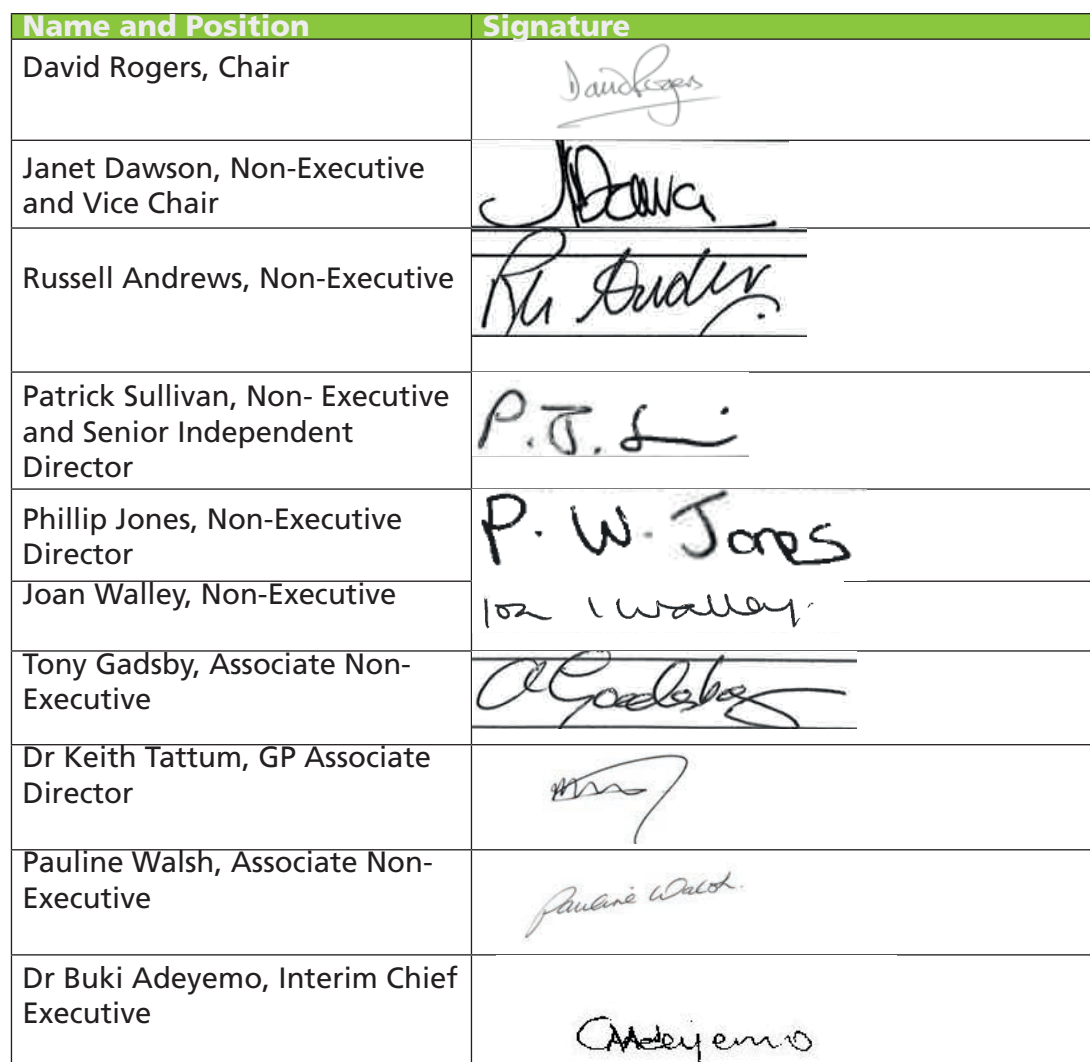 Name and Position Signature
David Rogers, Chair David Rogers
Janet Dawson, Non-Executive
and Vice Chair
Russell Andrews, Non-Executive
Patrick Sullivan, Non- Executive P. J.
and Senior Independent
Director
Phillip Jones, Non-Executive P. W. Jones
Director
Joan Walley, Non-Executive Walley.
Tony Gadsby, Associate Non-
Executive
Dr Keith Tattum, GP Associate
Director
Pauline Walsh, Associate Non- Pauline Walsh.
Executive
Dr Buki Adeyemo, Interim Chief
Executive Adeyemo